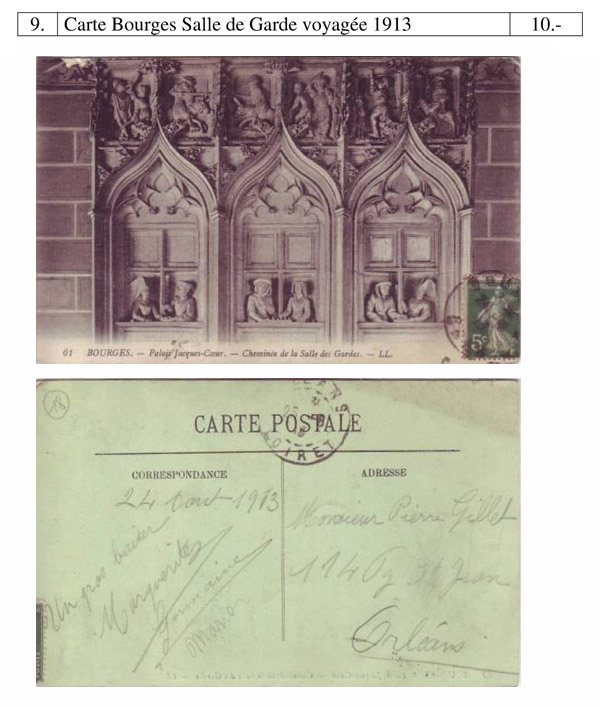 9. Carte Bourges Salle de Garde voyagée 1913 10.-
5c
61 BOURGES. — Palais Jacques-Cœur. — Cheminée de la Salle des Gardes. — LL.
18
CARTE POSTALE
CORRESPONDANCE
ADRESSE
24 Aout 1913
Un gros baiser
Marguerite
Germaine
Monsieur Pierre Gillet
114
Orléans